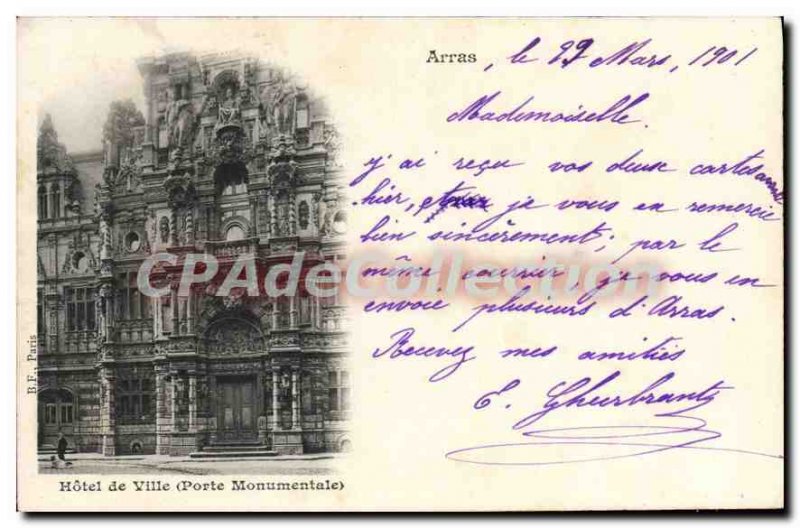 Arras, le 29 Mars, 1901
Mademoiselle.
j'ai reçu vos deux cartes avant
hier, je vous en remercie
bien sincèrement; par le
même courrier, je vous en
envoie plusieurs d'Arras.
Recevez mes amitiés
E. Gheerbrant
CPADeCollection
B.F., Paris
Hôtel de Ville (Porte Monumentale)